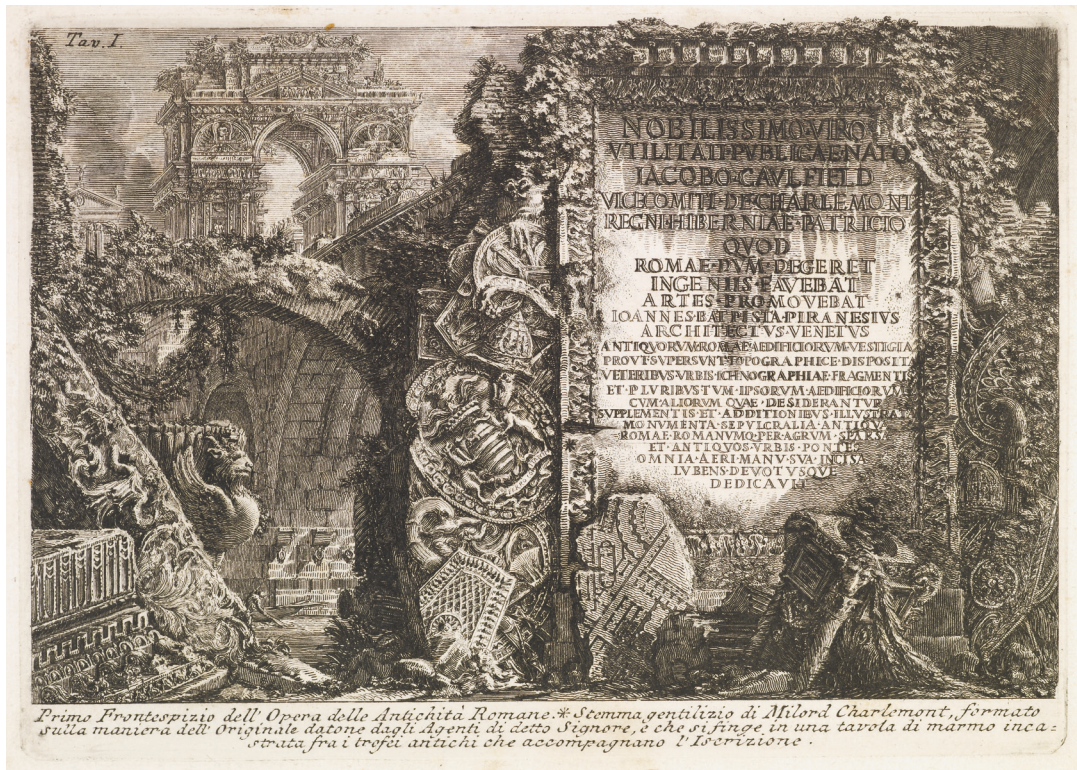 Tav. I.
NOBILISSIMO·VIRO
VTILITATI·PVBLICAE·NATO
IACOBO·CAVLFIELD
VICECOMITI·DE·CHARLEMONT
REGNI·HIBERNIAE·PATRICIO
QVOD
ROMAE·DVM·DEGERET
INGENIIS·FAVEBAT
ARTES·PROMOVEBAT
IOANNES·BAPTISTA·PIRANESIVS
ARCHITECTVS·VENETVS
ANTIQVORVM·ROMAE·AEDIFICIORVM·VESTIGIA
PROVT·SVPERSVNT·TOPOGRAPHICE·DISPOSITA
VETERIBVS·VRBIS·ICHNOGRAPHIAE·FRAGMENTIS
ET·PLVRIBVS·TVM·IPSORVM·AEDIFICIORVM
CVM·ALIORVM·QVAE·DESIDERANTVR
SVPPLEMENTIS·ET·ADDITIONIBVS·ILLVSTRAT
MONVMENTA·SEPVLCRALIA·ANTIQVA
ROMAE·ROMANVMQ·PER·AGRVM·SPARSA
ET·ANTIQVOS·VRBIS·PONTES
OMNIA·AERI·MANV·SVA·INCISA
LVBENS·DEVOTVSQVE
DEDICAVIT
Primo Frontespizio dell' Opera delle Antichità Romane. * Stemma gentilizio di Milord Charlemont, formato
sulla maniera dell' Originale datone dagli Agenti di detto Signore, e che si finge in una tavola di marmo inca=
strata fra i trofei antichi che accompagnano l'Iscrizione.